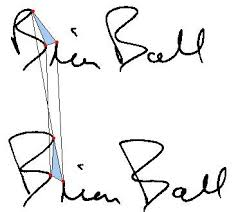 Brian Ball
Brian Ball